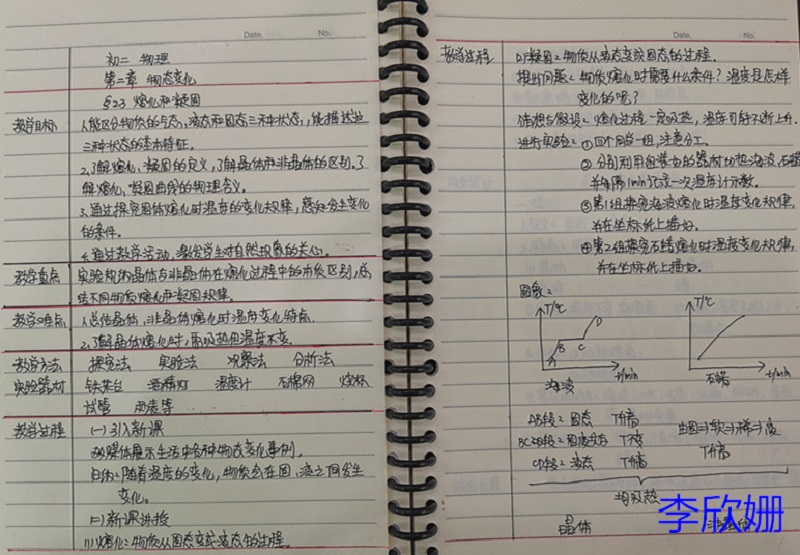 Date. No.
初二 物理
第二章 物态变化
§2.3 熔化和凝固
教学目标 1.能区分物质的气态、液态和固态三种状态,能描述这
三种状态的基本特征。
2.了解熔化、凝固的定义,了解晶体和非晶体的区别,了
解熔化、凝固曲线的物理含义。
3.通过探究固体熔化时温度的变化规律,感知发生变化
的条件。
4.通过教学活动,激发学生对自然现象的关心。
教学重点 实验探究晶体与非晶体在熔化过程中的本质区别,总
结不同物质熔化和凝固规律。
教学难点 1.总结晶体、非晶体熔化时温度变化特点.
2.了解晶体熔化时,需吸热但温度不变.
教学方法 探究法 实验法 观察法 分析法
实验器材 铁架台 酒精灯 温度计 石棉网 烧杯
试管 两表等
教学过程 (一)引入新课
多媒体展示生活中各种物态变化事例.
归纳:随着温度的变化,物质会在固、液之间发生
变化。
(二)新课讲授
(1)熔化:物质从固态变成液态的过程。
Date. No.
教学过程 (2)凝固:物质从液态变成固态的过程.
提出问题:物质熔化时需要什么条件?温度是怎样
变化的呢?
猜想与假设:熔化过程一定吸热,温度可能不断上升.
进行实验:①四个同学一组,注意分工.
②分别利用包装内的器材加热海波、石蜡
并每隔1min记录一次温度计示数.
③第1组探究海波熔化时温度变化规律,
并在坐标纸上描好。
④第2组探究石蜡熔化时温度变化规律,
并在坐标纸上描好。
图象:
T/℃ T/℃
D
B C
A
t/min t/min
海波 石蜡
AB段:固态 T升高
BC段:固液共存 T不变 由固→软→稀→液
CD段:液态 T升高 T升高
均吸热
晶体 非晶体
李欣姗